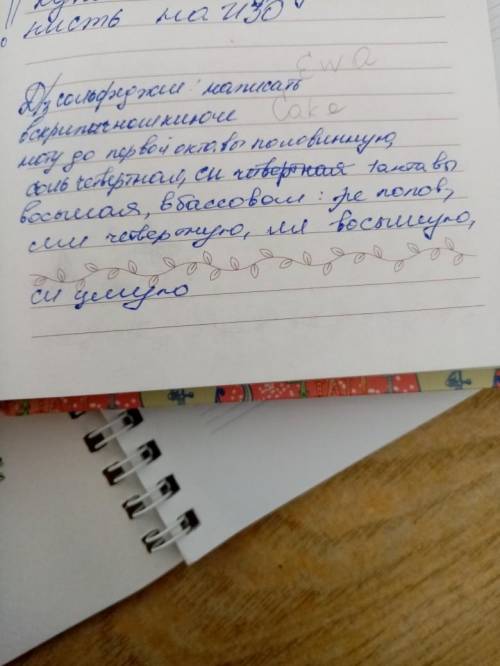 кисть на ИЗО
Ewa
Д/з сольфеджии: написать
Cake
в скрипичном ключе
ноту до первой октавы половинную,
соль четвертная, си четвертная 1 октавы
восьмая, в басовом: ре полов,
ми четвертную, ля восьмую,
си целую